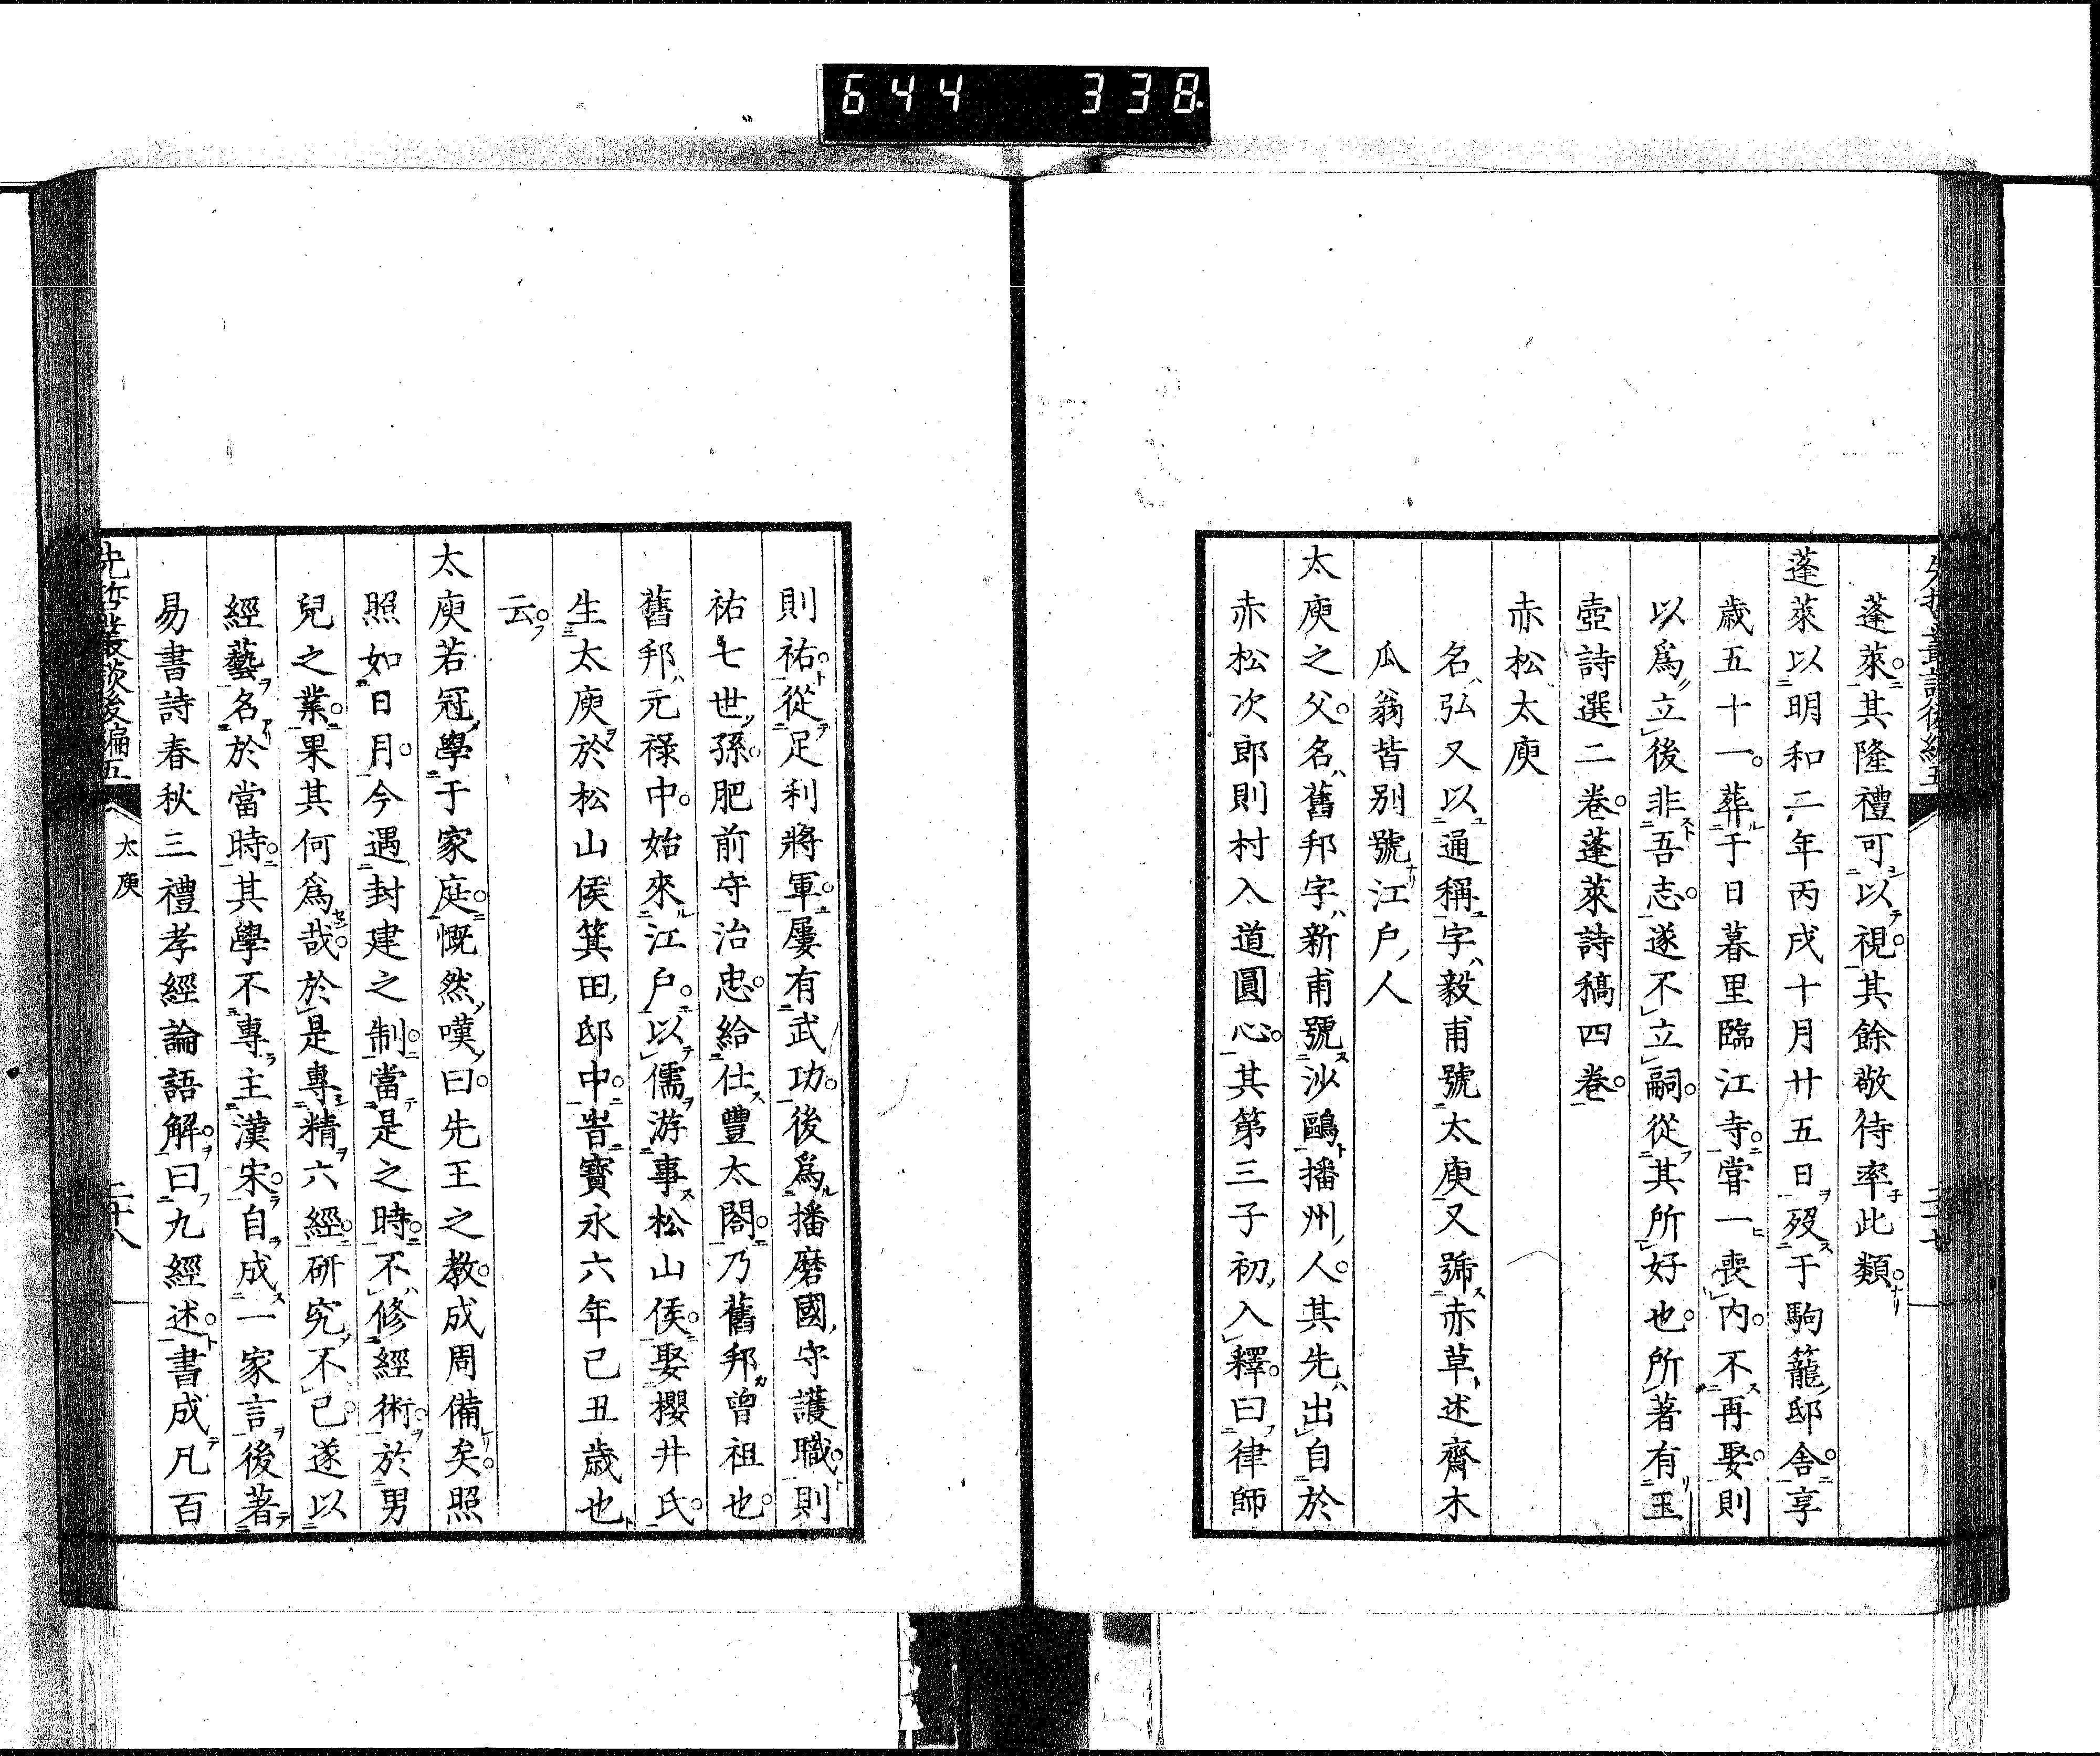 644 338
蓬萊其隆禮可以視其餘敬待率此類
蓬萊以明和二年丙戌十月廿五日歿于駒籠邸舍享
歲五十一葬于日暮里臨江寺嘗一喪內不再娶則
以爲立後非吾志遂不立嗣從其所好也所著有玉
壺詩選二卷蓬萊詩稿四卷
赤松太庾
名弘又以通稱字毅甫號太庾又號赤草述齋木
瓜翁皆別號江戶人
太庾之父名舊邦字新甫號沙鷗播州人其先出自於
赤松次郎則村入道圓心其第三子初入釋曰律師
則祐從足利將軍屢有武功後爲播磨國守護職則
祐七世孫肥前守治忠給仕豐太閤乃舊邦曾祖也
舊邦元祿中始來江戶以儒游事松山侯娶櫻井氏
生太庾於松山侯箕田邸中皆寶永六年己丑歲也
云
太庾若冠學于家庭慨然嘆曰先王之教成周備矣照
照如日月今遇封建之制當是之時不修經術於男
兒之業果其何爲哉於是專精六經研究不已遂以
經藝名於當時其學不專主漢宋自成一家言後著
易書詩春秋三禮孝經論語解曰九經述書成凡百
先哲叢談後編五
太庾
二十八